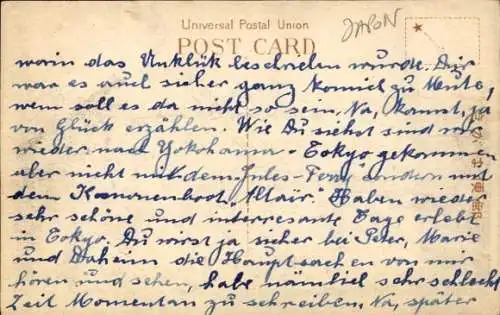 Universal Postal Union
POST CARD
JAPON
worin das Unklük beschrieben wurde. Dir
war es auch sicher ganz komich zu Mute,
wem soll es da nicht so sein, Na, kannst, ja
von Glück erzählen. Wie Du siehst sind wir
wieder nach Yokohama - Tokyo gekommen
aber nicht mit dem Jules-Ferry sondern mit
dem Kanonenboot "Altair." Haben wieder
sehr schöne und interresante Tage erlebt
in Tokyo. Du wirst ja sicher bei Peter, Marie
und Daheim die Hauptsachen von mir
hören und sehen, habe nämlich sehr schlecht
Zeit Momentan zu schreiben, Na, später